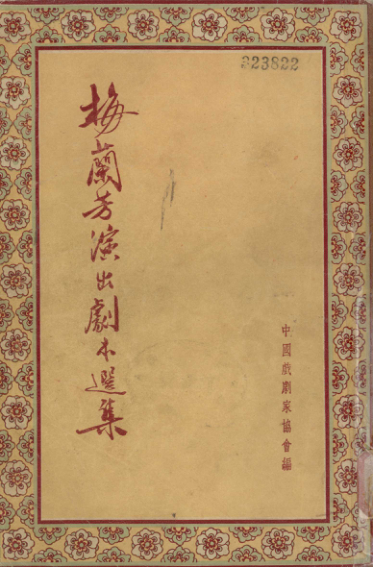 323822
梅蘭芳演出劇本選集
中國戲劇家協會編